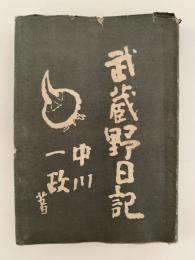 武蔵野日記
中川一政著